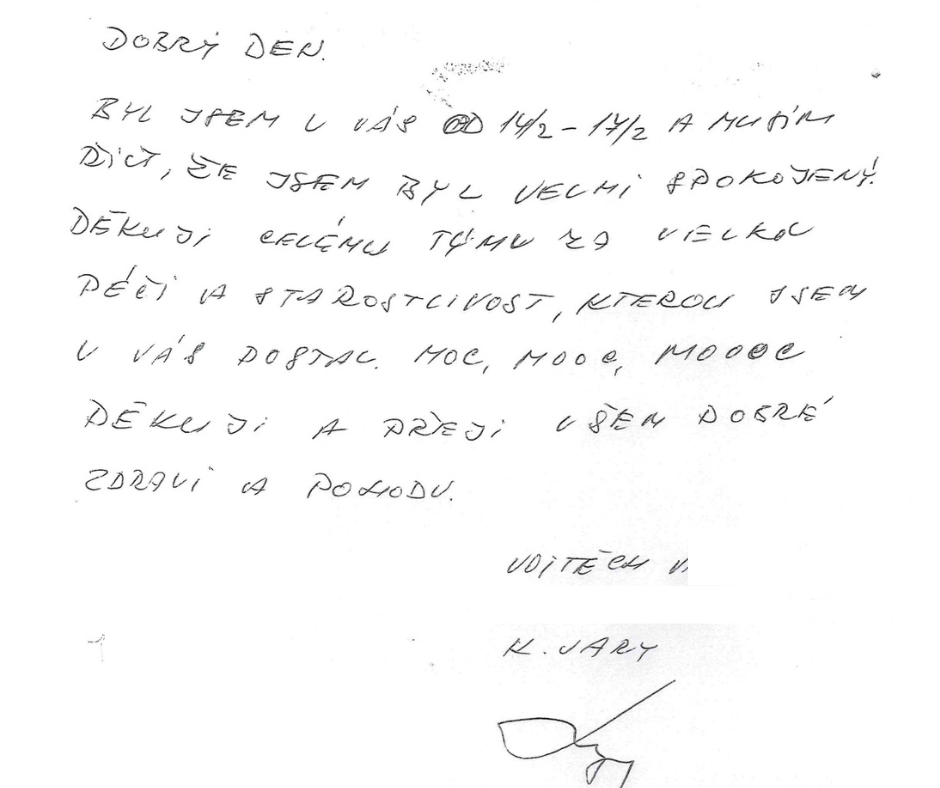 DOBRÝ DEN.
BYL JSEM U VÁS OD 14/2 - 17/2 A MUSÍM
ŘÍCT, ŽE JSEM BYL VELMI SPOKOJENÝ.
DĚKUJI CELÉMU TÝMU ZA VELKOU
PÉČI A STAROSTLIVOST, KTEROU JSEM
U VÁS DOSTAL. MOC, MOOC, MOOOC
DĚKUJI A PŘEJI VŠEM DOBRÉ
ZDRAVÍ A POHODU.
VOJTĚCH
K. VARY